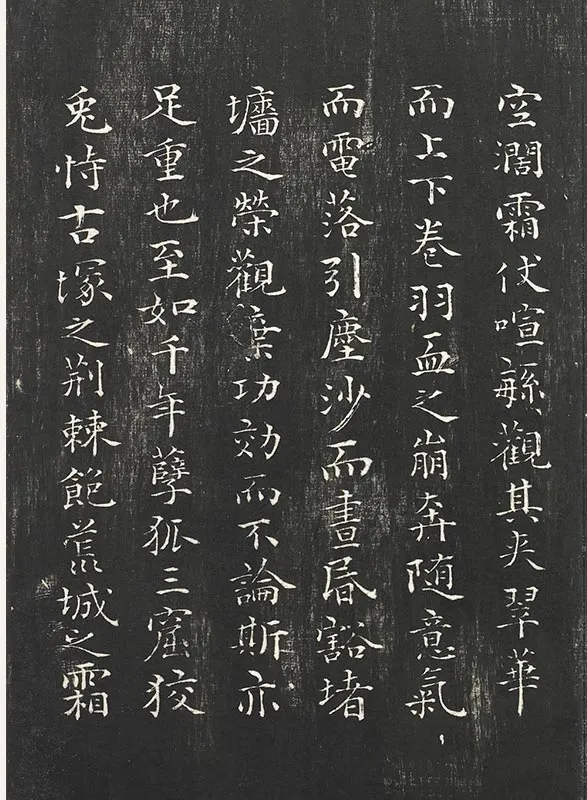 空濶霜仗喧繇觀其夾翠華
而上下卷羽血之崩奔随意氣
而電落引塵沙而晝昏豁堵
墻之榮觀棄功効而不論斯亦
足重也至如千年孽狐三窟狡
兎恃古塚之荆棘飽荒城之霜